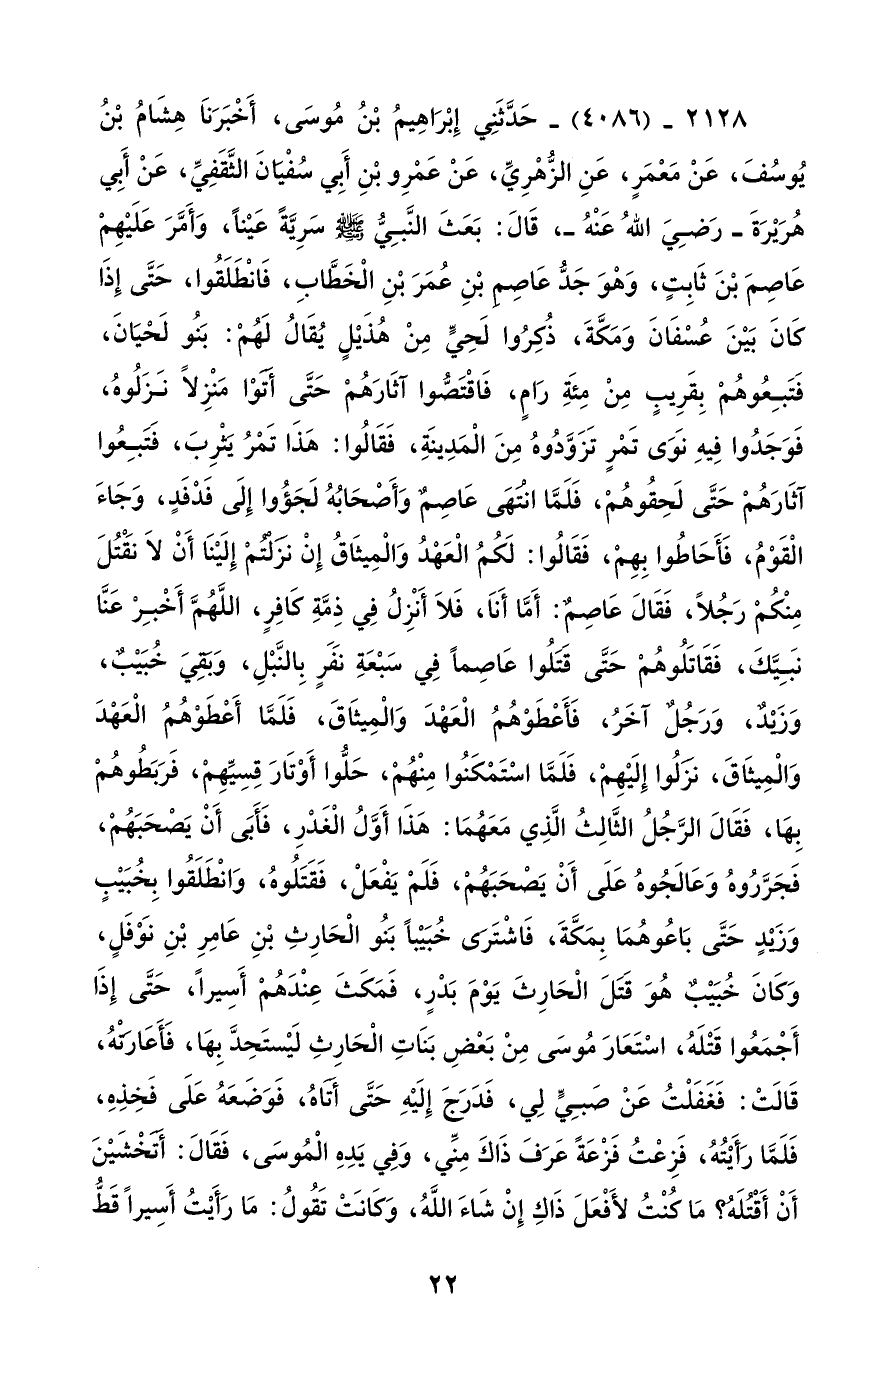 ٢١٢٨ ـ (٤٠٨٦) ـ حَدَّثَنِي إِبْرَاهِيمُ بْنُ مُوسَى، أَخْبَرَنَا هِشَامُ بْنُ
يُوسُفَ، عَنْ مَعْمَرٍ، عَنِ الزُّهْرِيِّ، عَنْ عَمْرِو بْنِ أَبِي سُفْيَانَ الثَّقَفِيِّ، عَنْ أَبِي
هُرَيْرَةَ ـ رَضِيَ اللهُ عَنْهُ ـ، قَالَ: بَعَثَ النَّبِيُّ ﷺ سَرِيَّةً عَيْناً، وَأَمَّرَ عَلَيْهِمْ
عَاصِمَ بْنَ ثَابِتٍ، وَهْوَ جَدُّ عَاصِمِ بْنِ عُمَرَ بْنِ الْخَطَّابِ، فَانْطَلَقُوا، حَتَّى إِذَا
كَانَ بَيْنَ عُسْفَانَ وَمَكَّةَ، ذُكِرُوا لَحِيٍّ مِنْ هُذَيْلٍ يُقَالُ لَهُمْ: بَنُو لَحْيَانَ،
فَتَبِعُوهُمْ بِقَرِيبٍ مِنْ مِئَةِ رَامٍ، فَاقْتَصُّوا آثَارَهُمْ حَتَّى أَتَوْا مَنْزِلاً نَزَلُوهُ،
فَوَجَدُوا فِيهِ نَوَى تَمْرٍ تَزَوَّدُوهُ مِنَ الْمَدِينَةِ، فَقَالُوا: هَذَا تَمْرُ يَثْرِبَ، فَتَبِعُوا
آثَارَهُمْ حَتَّى لَحِقُوهُمْ، فَلَمَّا انْتَهَى عَاصِمٌ وَأَصْحَابُهُ لَجَؤُوا إِلَى فَدْفَدٍ، وَجَاءَ
الْقَوْمُ، فَأَحَاطُوا بِهِمْ، فَقَالُوا: لَكُمُ الْعَهْدُ وَالْمِيثَاقُ إِنْ نَزَلْتُمْ إِلَيْنَا أَنْ لاَ نَقْتُلَ
مِنْكُمْ رَجُلاً، فَقَالَ عَاصِمٌ: أَمَّا أَنَا، فَلاَ أَنْزِلُ فِي ذِمَّةِ كَافِرٍ، اللَّهُمَّ أَخْبِرْ عَنَّا
نَبِيَّكَ، فَقَاتَلُوهُمْ حَتَّى قَتَلُوا عَاصِماً فِي سَبْعَةِ نَفَرٍ بِالنَّبْلِ، وَبَقِيَ خُبَيْبٌ،
وَزَيْدٌ، وَرَجُلٌ آخَرُ، فَأَعْطَوْهُمُ الْعَهْدَ وَالْمِيثَاقَ، فَلَمَّا أَعْطَوْهُمُ الْعَهْدَ
وَالْمِيثَاقَ، نَزَلُوا إِلَيْهِمْ، فَلَمَّا اسْتَمْكَنُوا مِنْهُمْ، حَلُّوا أَوْتَارَ قِسِيِّهِمْ، فَرَبَطُوهُمْ
بِهَا، فَقَالَ الرَّجُلُ الثَّالِثُ الَّذِي مَعَهُمَا: هَذَا أَوَّلُ الْغَدْرِ، فَأَبَى أَنْ يَصْحَبَهُمْ،
فَجَرَّرُوهُ وَعَالَجُوهُ عَلَى أَنْ يَصْحَبَهُمْ، فَلَمْ يَفْعَلْ، فَقَتَلُوهُ، وَانْطَلَقُوا بِخُبَيْبٍ
وَزَيْدٍ حَتَّى بَاعُوهُمَا بِمَكَّةَ، فَاشْتَرَى خُبَيْباً بَنُو الْحَارِثِ بْنِ عَامِرِ بْنِ نَوْفَلٍ،
وَكَانَ خُبَيْبٌ هُوَ قَتَلَ الْحَارِثَ يَوْمَ بَدْرٍ، فَمَكَثَ عِنْدَهُمْ أَسِيراً، حَتَّى إِذَا
أَجْمَعُوا قَتْلَهُ، اسْتَعَارَ مُوسَى مِنْ بَعْضِ بَنَاتِ الْحَارِثِ لَيْسَتَحِدَّ بِهَا، فَأَعَارَتْهُ،
قَالَتْ: فَغَفَلْتُ عَنْ صَبِيٍّ لِي، فَدَرَجَ إِلَيْهِ حَتَّى أَتَاهُ، فَوَضَعَهُ عَلَى فَخِذِهِ،
فَلَمَّا رَأَيْتُهُ، فَزِعْتُ فَزْعَةً عَرَفَ ذَاكَ مِنِّي، وَفِي يَدِهِ الْمُوسَى، فَقَالَ: أَتَخْشَيْنَ
أَنْ أَقْتُلَهُ؟ مَا كُنْتُ لأَفْعَلَ ذَاكِ إِنْ شَاءَ اللَّهُ، وَكَانَتْ تَقُولُ: مَا رَأَيْتُ أَسِيراً قَطُّ
٢٢